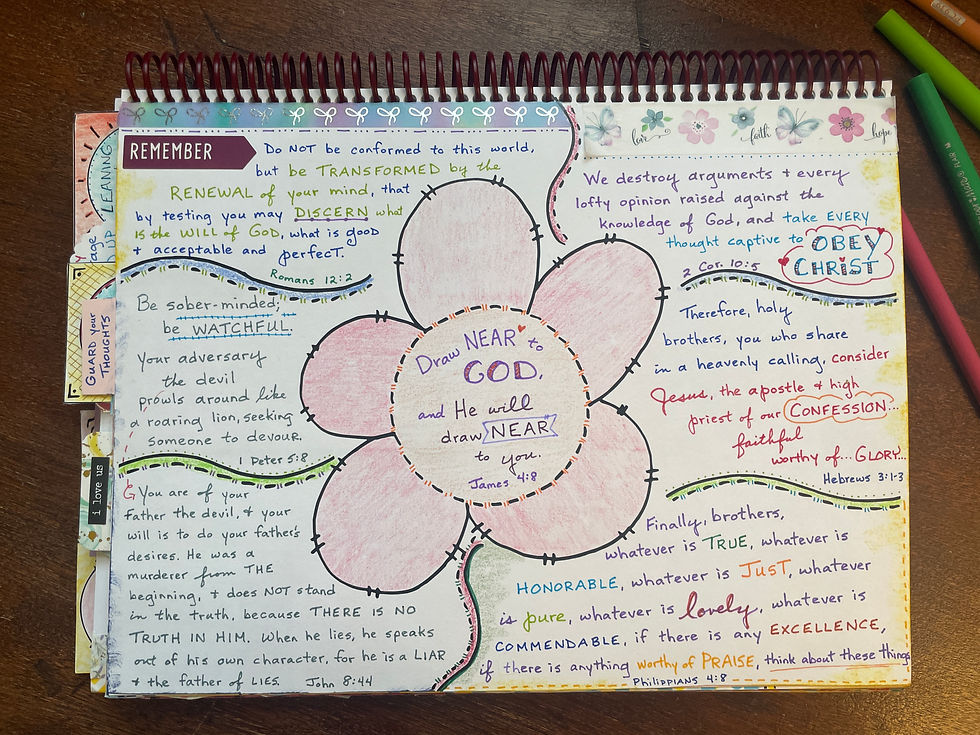 REMEMBER
Do NOT be conformed to this world,
but be TRANSFORMED by the
RENEWAL of your mind, that
by testing you may DISCERN what
is the WILL of GOD, what is good
+ acceptable and perfecT.
Romans 12:2
Be sober-minded;
be WATCHFUL.
Your adversary
the devil
prowls around like
a roaring lion, seeking
someone to devour.
1 Peter 5:8
You are of your
father the devil, + your
will is to do your father's
desires. He was a
murderer from THE
beginning, + does NOT stand
in the truth, because THERE IS NO
TRUTH IN HIM. When he lies, he speaks
out of his own character, for he is a LIAR
+ the father of LIES. John 8:44
Draw NEAR to
GOD,
and He will
draw NEAR
to you.
James 4:8
love faith hope
We destroy arguments + every
lofty opinion raised against the
knowledge of God, and take EVERY
thought captive to OBEY
CHRIST
2 Cor. 10:5
Therefore, holy
brothers, you who share
in a heavenly calling, consider
Jesus, the apostle + high
priest of our CONFESSION...
faithful
worthy of... GLORY...
Hebrews 3:1-3
Finally, brothers,
whatever is TRUE, whatever is
HONORABLE, whatever is JUST, whatever
is pure, whatever is lovely, whatever is
COMMENDABLE, if there is any EXCELLENCE,
if there is anything worthy of PRAISE, think about these things
Philippians 4:8
LEANING
UP
GUARD Your
THOUGHTS
i love us